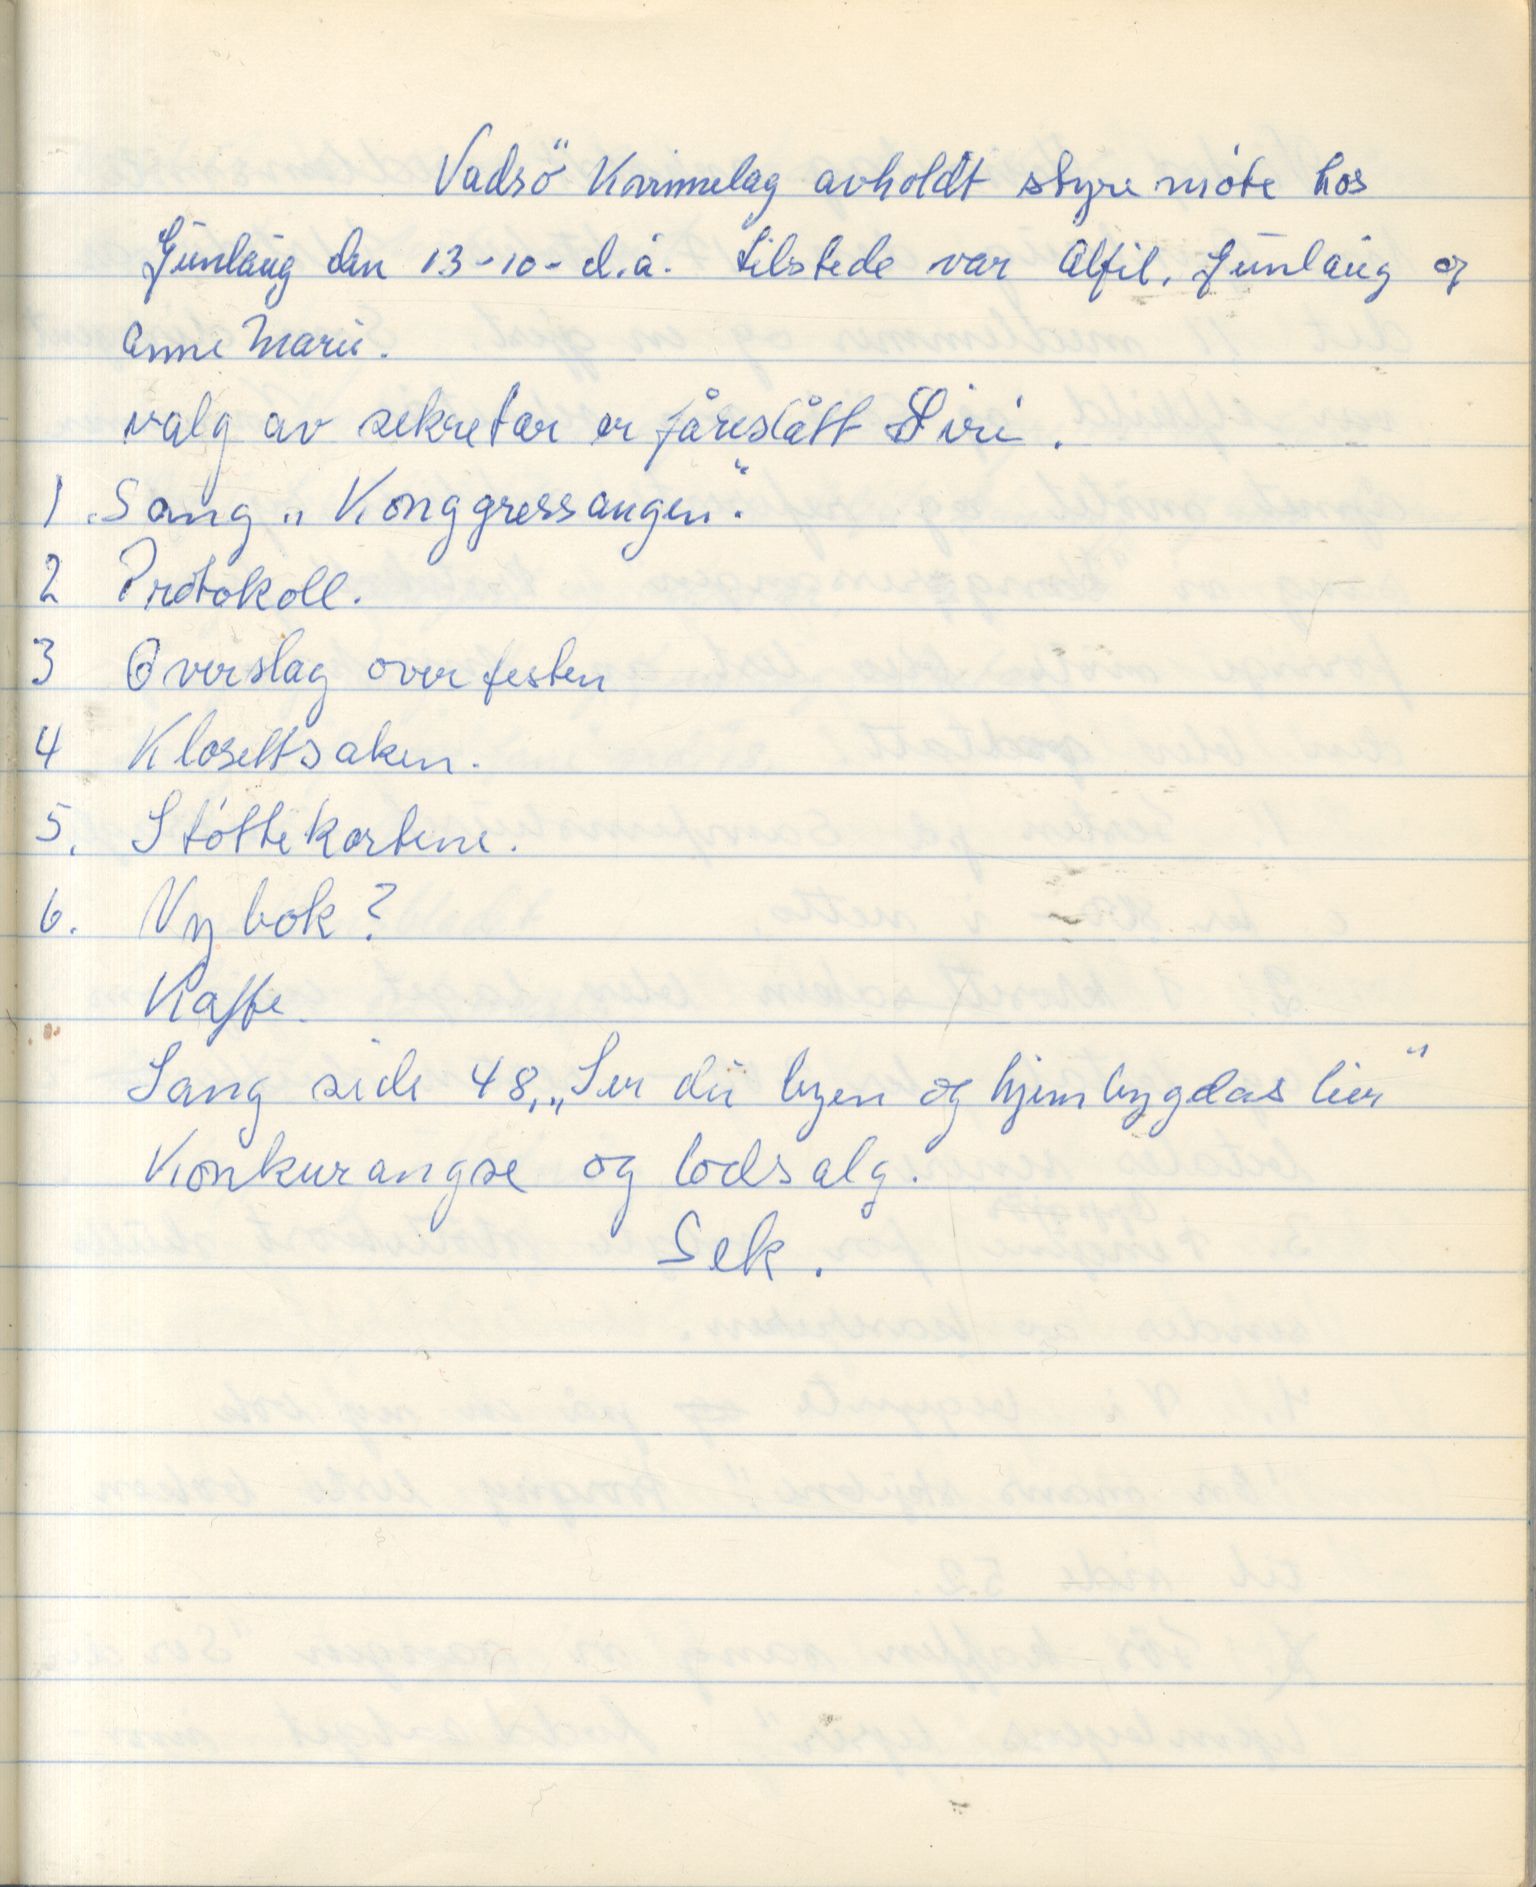 Vadsö Kvinnelag avholdt styremöte hos
Gunlaug den 13-10- d.å. tilstede var Alfil, Gunlaug og
Anne Marie.
valg av sekretær er föreslått Siri.
1. Sang „Konggressangen".
2 Protokoll.
3 Overslag over festen
4 Klosettsaken.
5. Støttekortene.
6. Ny bok?
Kaffe.
Sang side 48, „Ser du byen og hjembygdas lier"
Konkurangse og lodsalg.
Sek.